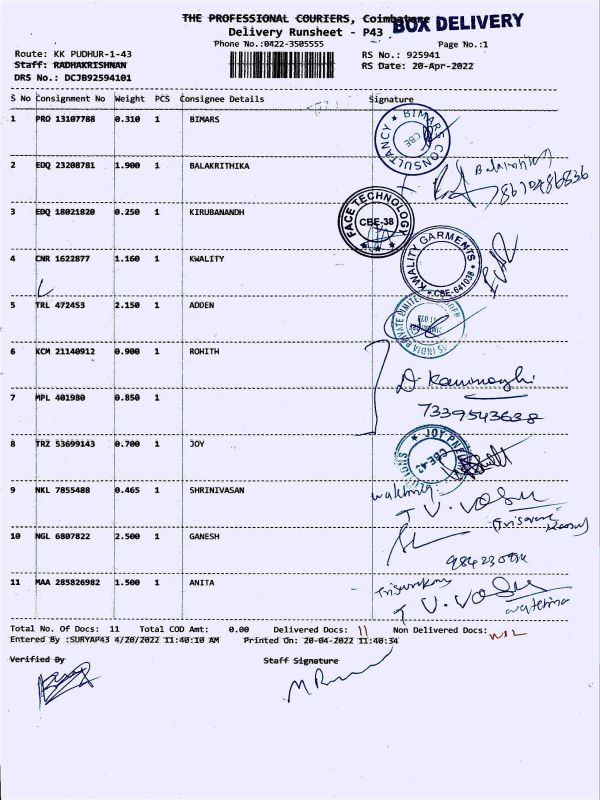 THE PROFESSIONAL COURIERS, Coimbatore
BOX DELIVERY
Delivery Runsheet - P43
Phone No.:0422-3505555
Page No.:1
Route: KK PUDHUR-1-43
RS No.: 925941
Staff: RADHAKRISHNAN
RS Date: 20-Apr-2022
DRS No.: DCJB92594101
S No Consignment No Weight PCS Consignee Details Signature
1 PRO 13107788 0.310 1 BIMARS
BIMARS CONSULTANCY CBE
2 EDQ 23208781 1.900 1 BALAKRITHIKA
8610486836
3 EDQ 18021820 0.250 1 KIRUBANANDH
FACE TECHNOLOGY CBE-38
4 CNR 1622877 1.160 1 KWALITY
KWALITY GARMENTS CBE-641038
5 TRL 472453 2.150 1 ADDEN
INDIA PRIVATE LIMITED
6 KCM 21140912 0.900 1 ROHITH
7 MPL 401980 0.850 1
7339543638
8 TRZ 53699143 0.700 1 JOY
JOY CBE-42
9 NKL 7855488 0.465 1 SHRINIVASAN
T V. VASU
10 NGL 6807822 2.500 1 GANESH
11 MAA 285826982 1.500 1 ANITA
T V. VASU
Total No. Of Docs: 11 Total COD Amt: 0.00 Delivered Docs: 11 Non Delivered Docs: NIL
Entered By :SURYAP43 4/20/2022 11:40:10 AM Printed On: 20-04-2022 11:40:34
Verified By Staff Signature